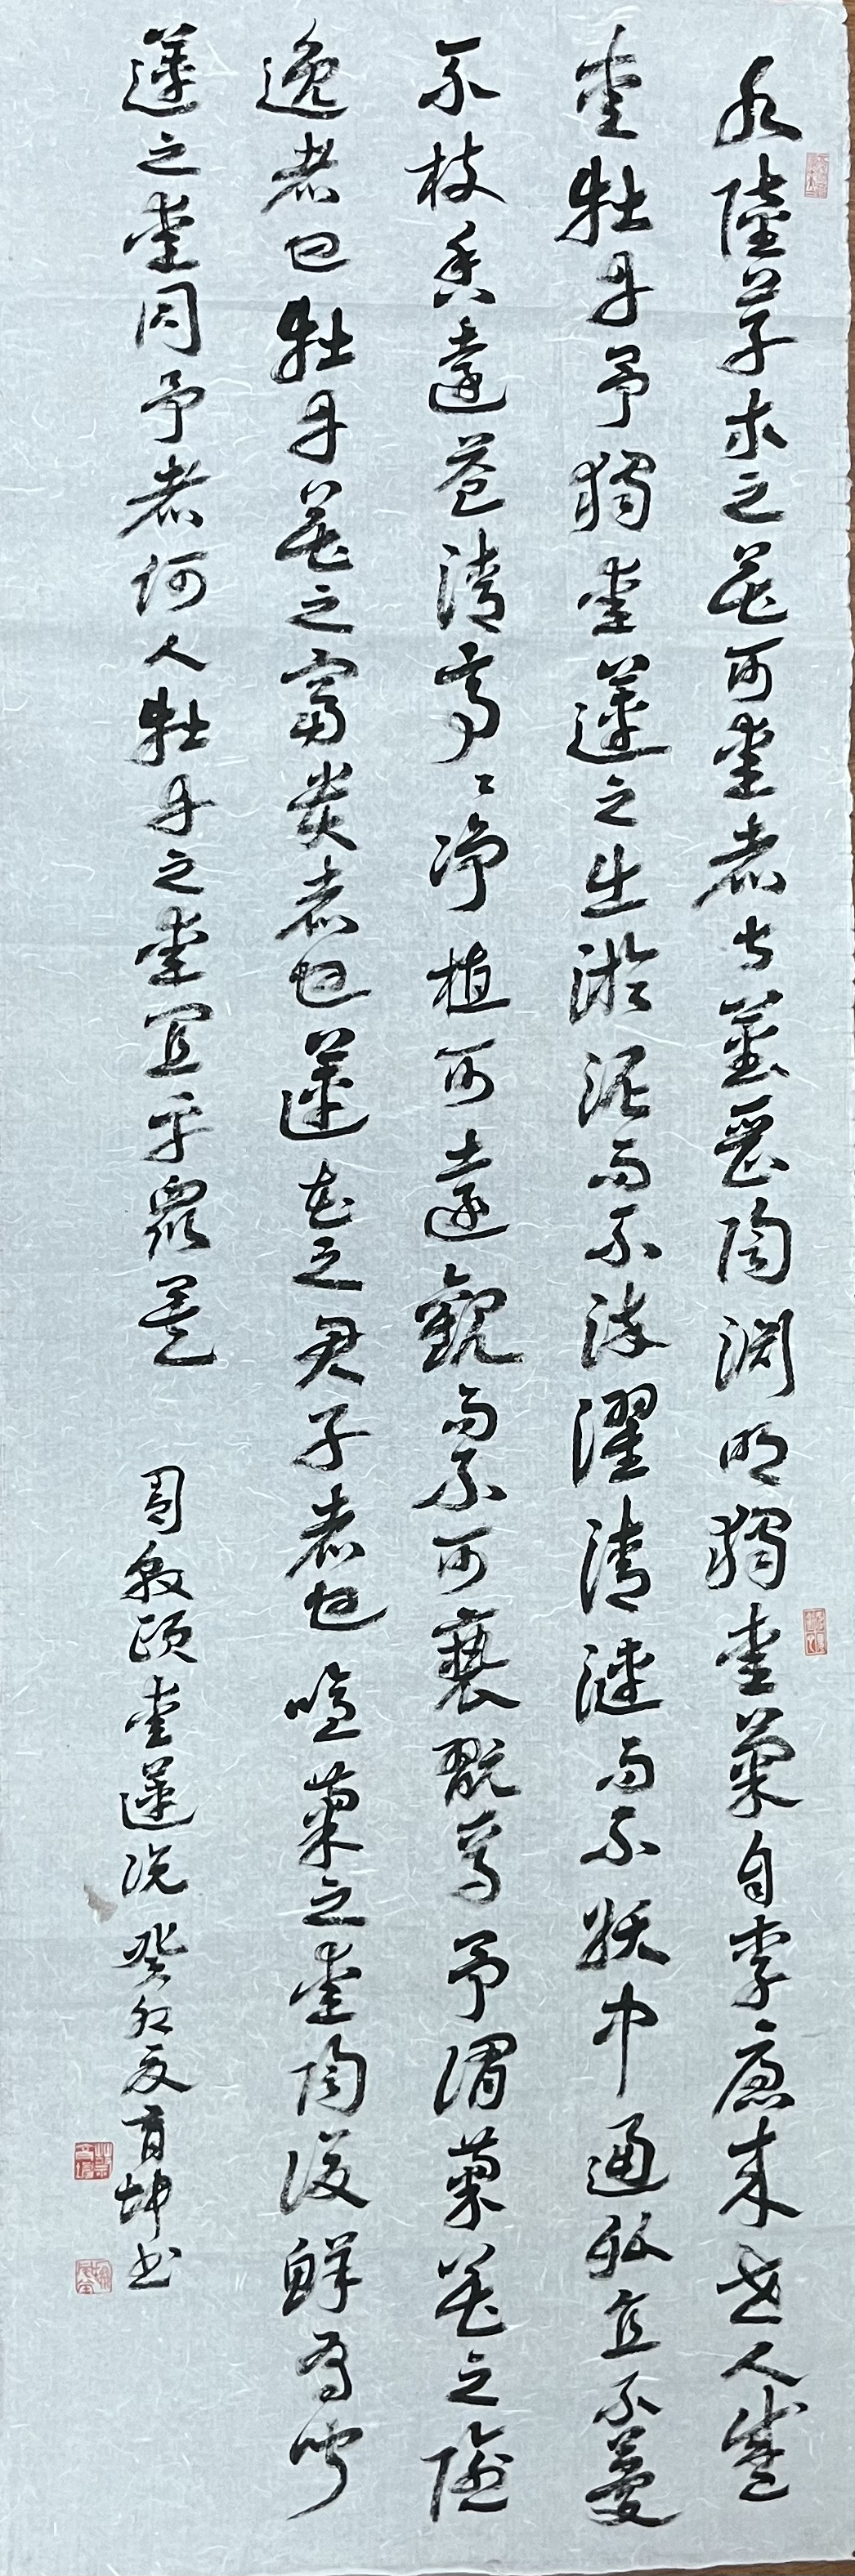 水陸草木之花可愛者甚蕃晉陶淵明獨愛菊自李唐來世人盛
愛牡丹予獨愛蓮之出淤泥而不染濯清漣而不妖中通外直不蔓
不枝香遠益清亭々净植可遠觀而不可褻翫焉予謂菊花之隱
逸者也牡丹花之富貴者也蓮花之君子者也噫菊之愛陶後鮮有聞
蓮之愛同予者何人牡丹之愛宜乎衆矣
周敦頤愛蓮説 癸卯夏 育坤书